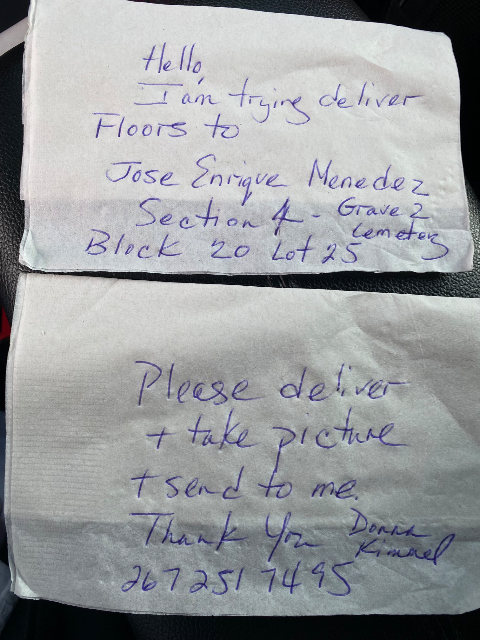 Hello,
I am trying deliver
Floors to
Jose Enrique Menedez
Section 4 - Grave 2
Cemetery
Block 20 Lot 25
Please deliver
+ take picture
+ send to me.
Thank You Donna
Kimmel
267 251 7495